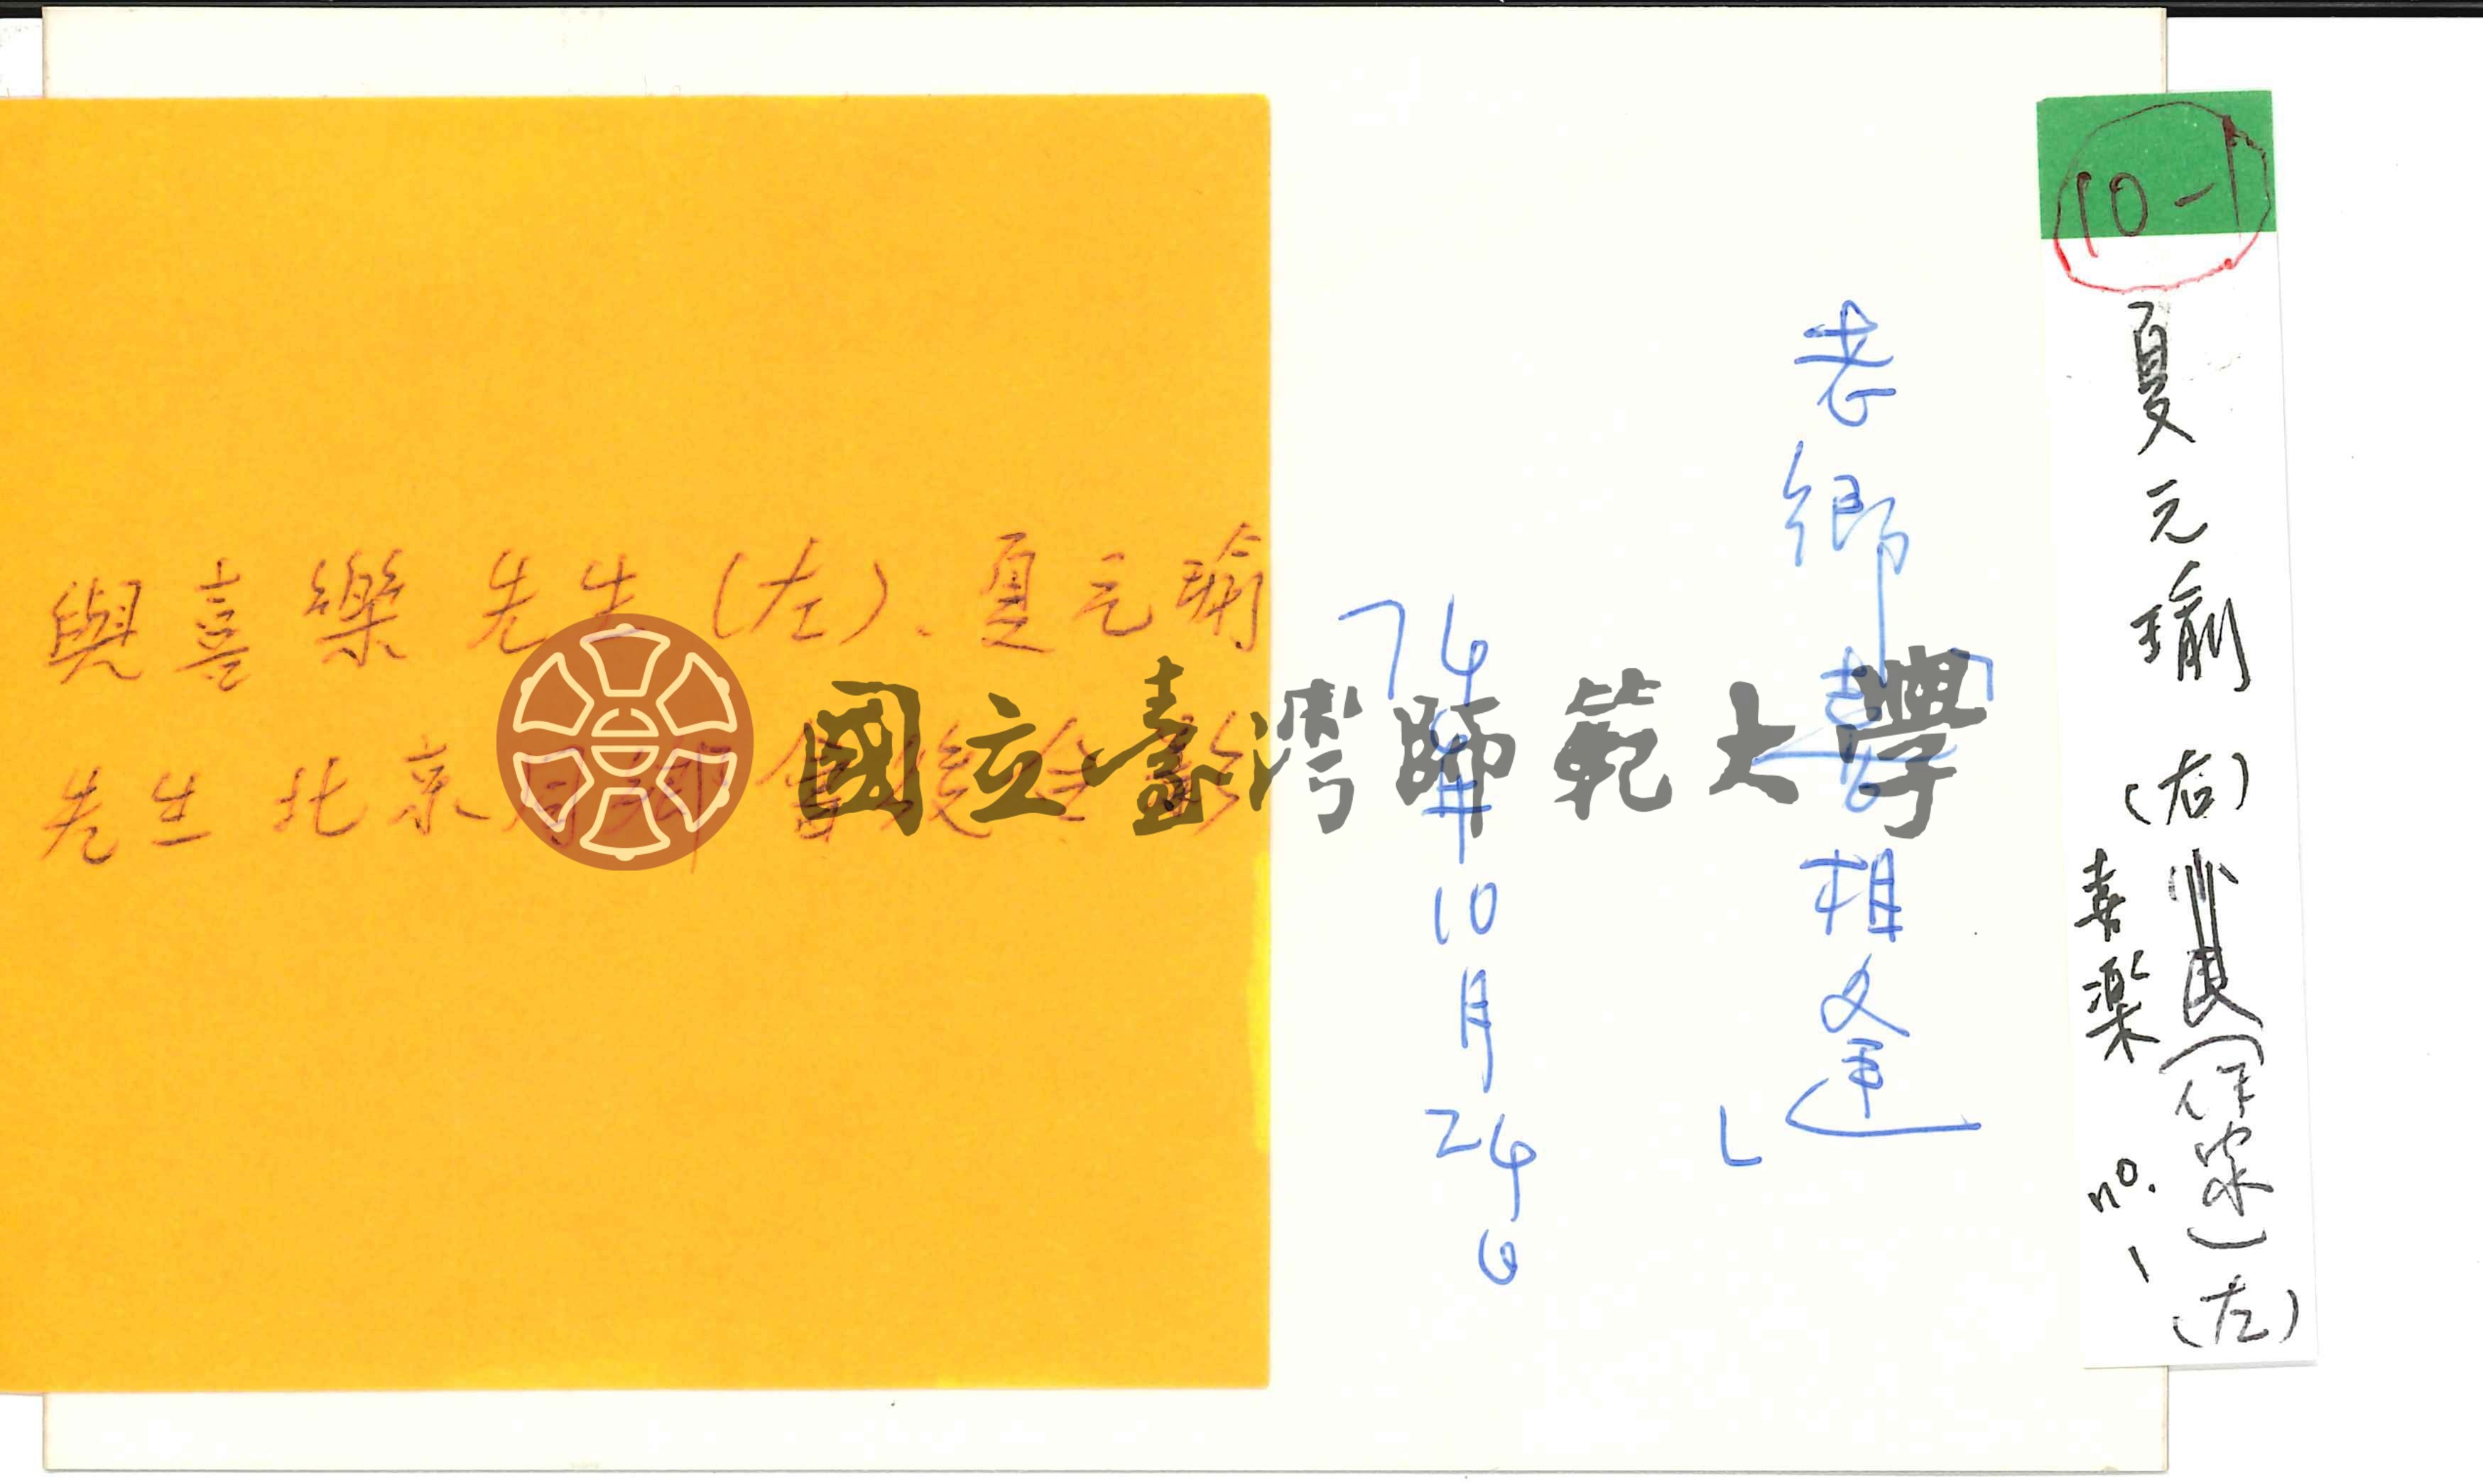 10-1
夏元瑜(右)
(作家)(左)
喜樂 no.1
老鄉「喜相逢」
74年10月24日
與喜樂先生(左)、夏元瑜
先生北京同鄉會後合影
國立臺灣師範大學